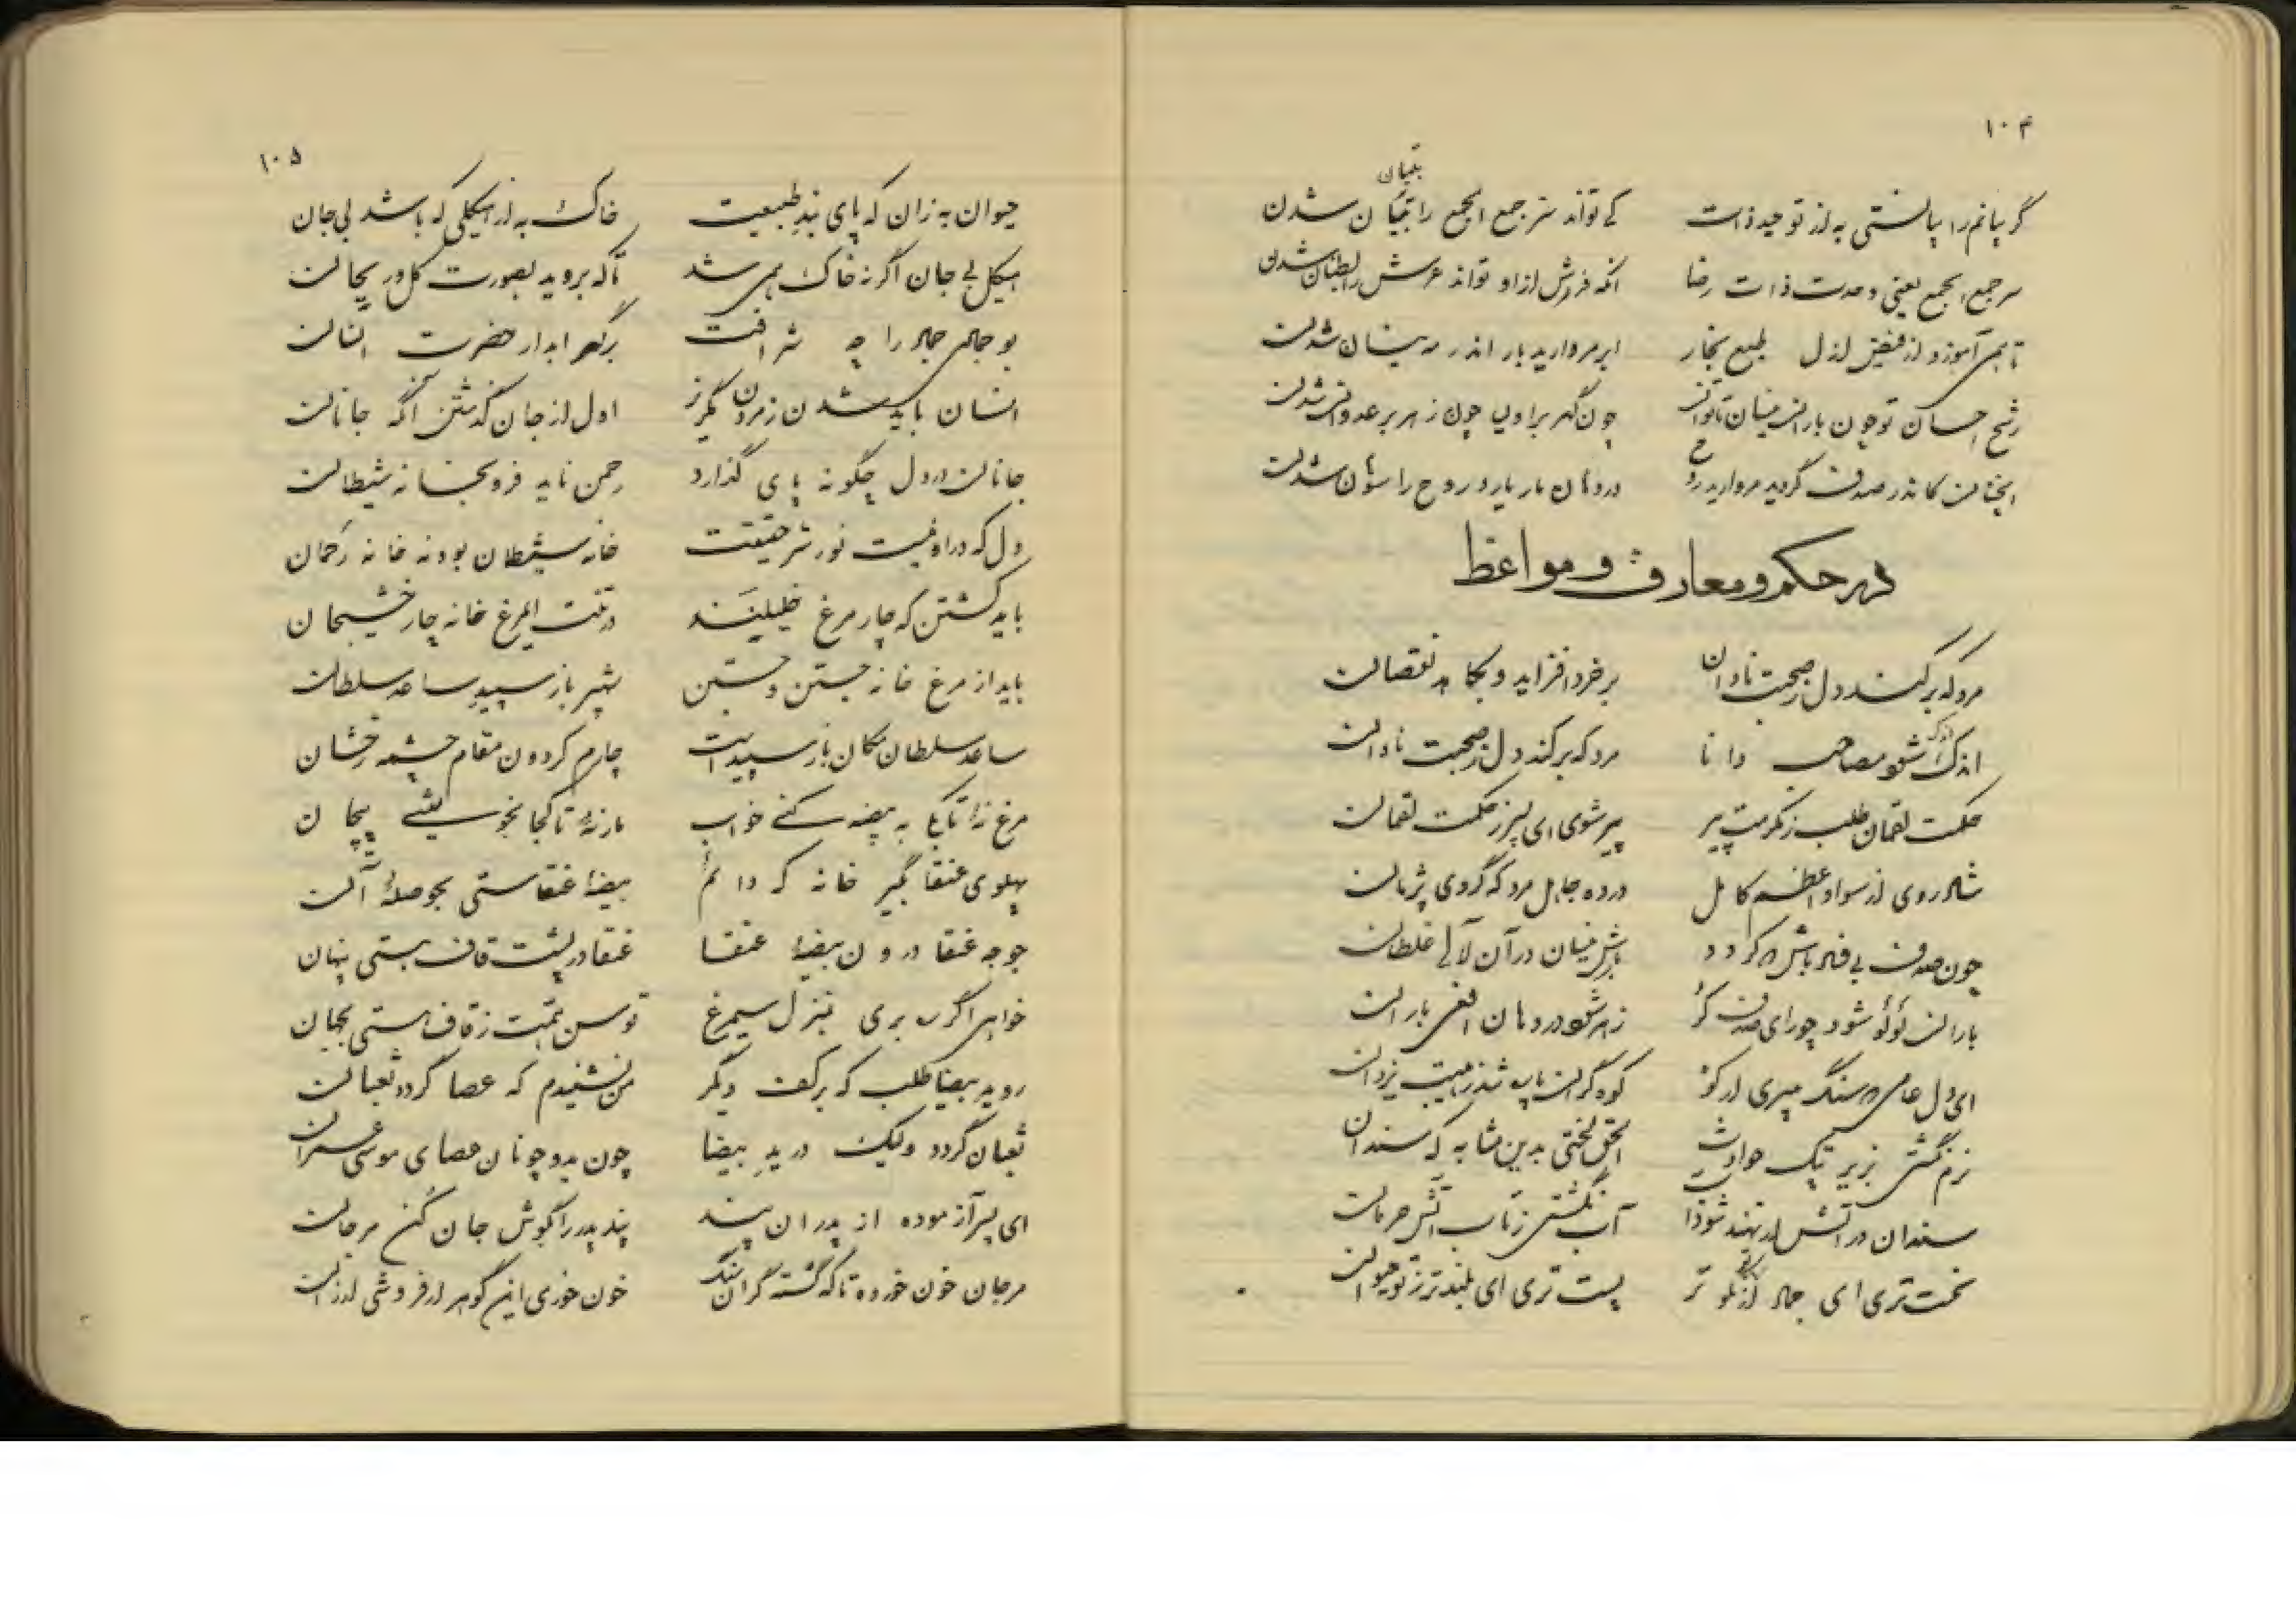 ۱۰۴
تبیان
گر بیانم را بیانستی به از توحید ذات کی تواند سر جمع الجمع را تبیان شدن
سر جمع الجمع یعنی وحدت ذات رضا آنکه فرش از او تواند عرش را شدن
تا همی آموزد از فیض ازل طبع بخار ابر مروارید بار اندر مه نیسان شدن
رشح احسان تو چون باران نیسان چون گهر بر اولیا چون زهر بر عدوان شدن
آنچنان کاندر صدف گردید مروارید در دهان مار یارد روح را شدن
در حکم و معارف و مواعظ
مرد که برکند دل ز صحبت نادان بر خرد افزاید و بکاهد نقصان
اندک اندک شو مصاحب دانا مرد که برکند دل ز صحبت نادان
حکمت لقمان طلب ز مکرمت پیر پیر شوی ای پسر ز حکمت لقمان
شاد روی از سواد اعظم کامل در ده جاهل مرو که گردی پژمان
چون صدف بی باش که گردد بارش نیسان در آن لآلی غلطان
باران لؤلؤ شود چو رای صدف کرد زهر شود در دهان افعی باران
ای دل عاصی سنگ میری ار کوه گران آب شد ز هیبت یزدان
نرم نگشتی بزیر پتک حوادث الحق لختی بدین مثابه که سندان
سندان در آتش ار نهند شود آب آب نگشتی ز تاب آتش حرمان
سخت تری ای جماد از تو پست تری ای بلندتر ز تو حیوان
۱۰۵
حیوان به زان که پای بند طبیعت خاک به از هیکلی که باشد بی جان
هیکل بی جان اگر نه خاک همی شد تا که بروید بصورت گل و ریحان
بوجهل جهل را چه شرافت بر گهر ابدار حضرت انسان
انسان باید شدن ز مردن مگریز اول از جان گذشتن آنگه جانان
جانان در دل چگونه پای گذارد رحمن ناید فرو بخانه شیطان
دل که در او نیست نور شرع حقیقت خانه شیطان بود نه خانه رحمان
باید کشتن که چار مرغ خلیلیند در تنت ای مرغ خانه چار خشیجان
باید از مرغ خانه جستن و جستن شهپر باز سپید ساعد سلطان
ساعد سلطان مکان باز سپید است چارم گردون مقام چشمه رخشان
مرغ نهٔ تا بکی به بیضه کنی خواب مار نهٔ تا کجا بخویشی پیچان
پهلوی عنقا بگیر خانه که دائم بیضهٔ عنقاستی بحوصلهٔ آن
جوجه عنقا درون بیضهٔ عنقا عنقا در پشت قاف هستی پنهان
خواهی اگر پی بری بمنزل سیمرغ توسن همت ز قاف هستی بجهان
رو ید بیضا طلب که بر کف دیگر من نشنیدم که عصا گردد ثعبان
ثعبان گردد ولیک در ید بیضا چون ید و چونان عصای موسی عمران
ای پسر آزموده از پدران پند پند پدر را بگوش جان کن مرجان
مرجان خون خورده تا که گشته گران سنگ خون خوری این گوهر ار فروشی ارزان